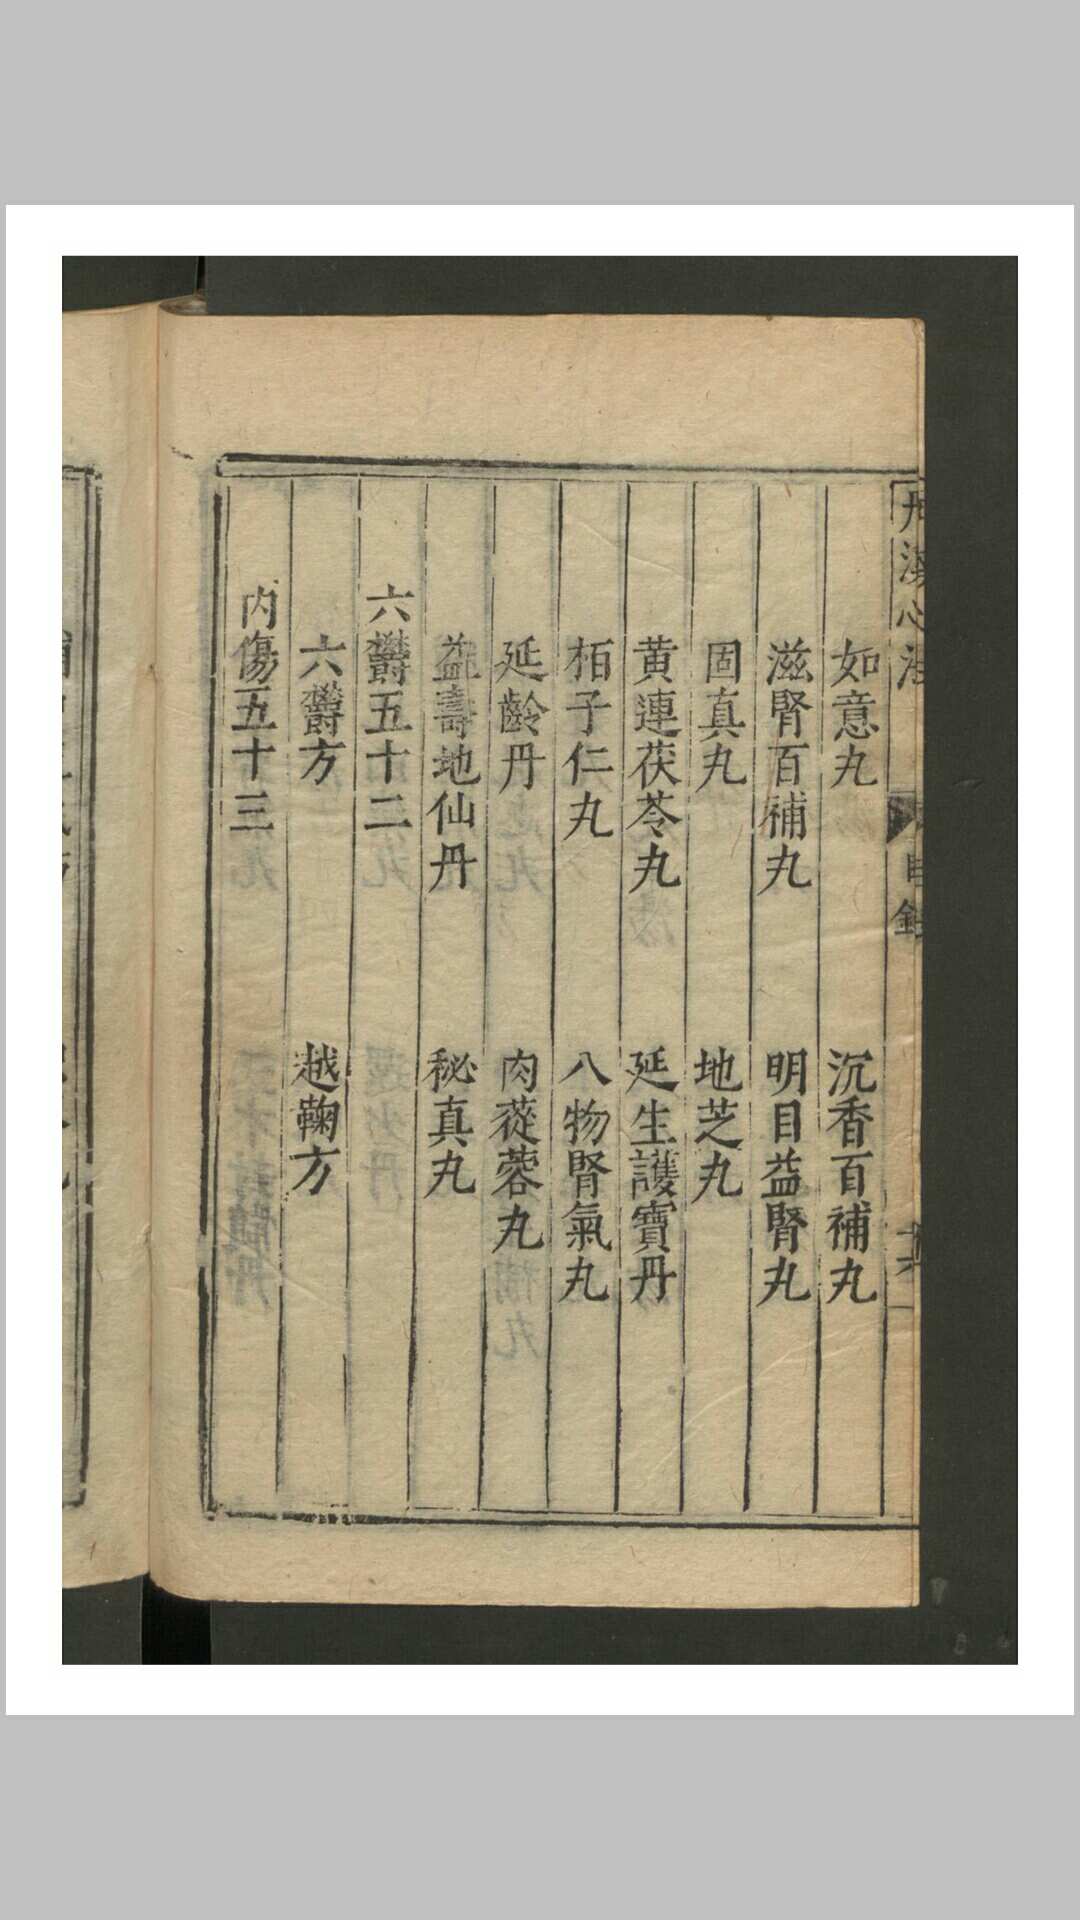 丹溪心法
目錄
如意丸 沉香百補丸
滋腎百補丸 明目益腎丸
固真丸 地芝丸
黄連茯苓丸 延生護寶丹
栢子仁丸 八物腎氣丸
延齡丹 肉蓯蓉丸
益壽地仙丹 秘真丸
六欝五十二
六欝方 越鞠方
内傷五十三